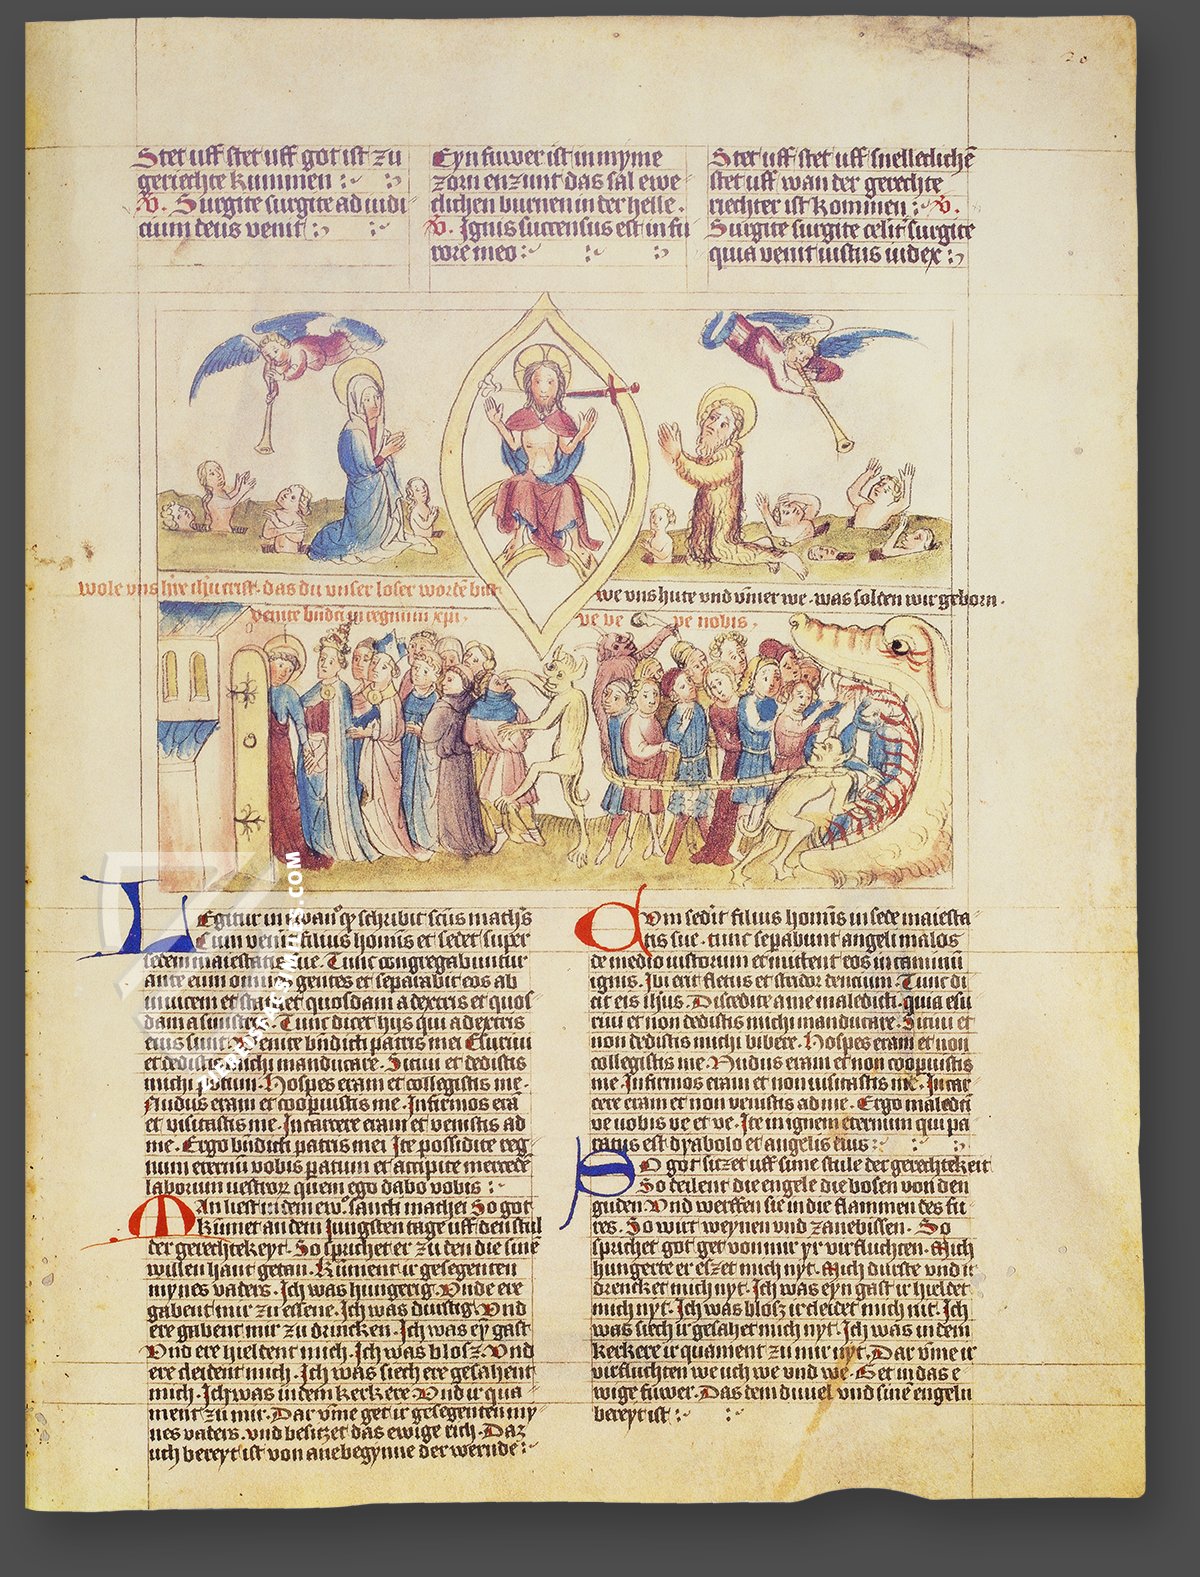 20
Stet uff stet uff got ist zu
geriechte kummen :~ :~
V. Surgite surgite ad iudi
cium deus venit :~ :~
Eyn fuwer ist in myme
zorn enzunt das sal ewe
clichen burnen in der helle.
V. Ignis succensus est in fu
rore meo :~ :~ :~
Stet uff stet uff snelleclichē
stet uff wan der gerechte
riechter ist kommen :~ V.
Surgite surgite celit̄ surgite
quia venit iustus iudex :~
wole vns h̄re ih̄u crist. das du vnser loser wordē bist
we vns hute vnd v̄mer we. was solten wir geborn.
venite bn̄dicti in regnum xp̄i.
ve ve ve nobis.
Legitur in ewanḡ qͦ scribit scūs math̄s
Cum venit filius homīs et sedet super
sedem maiestatis sue. Tunc congregabuntur
ante eum omnes gentes et separabit eos ab
inuicem et statuet quosdam a dextris et quos
dam a sinistris. Tunc dicet hijs qui a dextris
eius sunt. Venite bn̄dicti patris mei Esuriui
et dedistis michi manducare. Sitiui et dedistis
michi potum. Hospes eram et collegistis me.
Nudus eram et coopuistis me. Infirmos erā
et visitastis me. In carcere eram et venistis ad
me. Ergo bn̄dicti patris mei Ite possidite reg
num eternū vobis paratum et accipite mercedē
laborum vestrorꝝ quem ego dabo vobis :~
Man liest in dem ew. sancti mathei So got
kūmet an dem Jungsten tage uff den stul
der gerechtekeyt. So sprichet er zu den die sinē
willen hant getan. Kūment ir gesegenten
mynes vaders. Ich was hungerig. Vnde ere
gabent mir zu essene. Ich was durstig. Vnd
ere gabent mir zu drincken. Ich was eȳ gast
Vnd ere hieltent mich. Ich was blosz. Vnd
ere cleident mich. Ich was siech ere gesahent
mich. Ich was in dem kerkere. Vnd ir qua
ment zu mir. Dar v̄me get ir gesegenten my
nes vaders. vnd besitzet das ewige rich. Daz
uch bereyt ist von anebegynne der wernde :~
Cum sedīt filius homīs in sede maiesta
tis sue. tunc sepabunt angeli malos
de medio iustorum et mittent eos in caminū
ignis. Ibi erit fletus et stridor dencium. Tunc di
cit eis ih̄sus. Discedite a me maledicti. quia esu
riui et non dedistis michi manducare. Sitiui et
non dedistis michi bibere. Hospes eram et non
collegistis me. Nudus eram et non coopuistis
me. Infirmos eram et non visitastis me. In car
cere eram et non venistis ad me. Ergo maledcī
ve vobis ve et ve. Ite in ignem eternum qui pa
ratus est dyabolo et angelis eius :~ :~ :~
So got sitzet uff sime stule der gerechtekeit
So deilent die engele die bosen von den
guden. Vnd werffen sie in die flammen des fu
res. So wirt weynen vnd zanebissen. So
sprichet got get von mir yr virfluchten. Mich
hungerte er eszet mich nyt. Mich durste vnd ir
drencket mich nyt. Ich was eyn gast ir hieldet
mich nyt. Ich was blosz ir cleidet mich nit. Ich
was siech ir gesahet mich nyt. Ich was in dem
kerkere ir quament zu mir nyt. Dar v̄me ir
virfluchten we uch we vnd we. Get in das e
wige fuwer. Das dem duuel vnd sinē engeln
bereyt ist :~ :~
ZIEREISFACSIMILES.COM